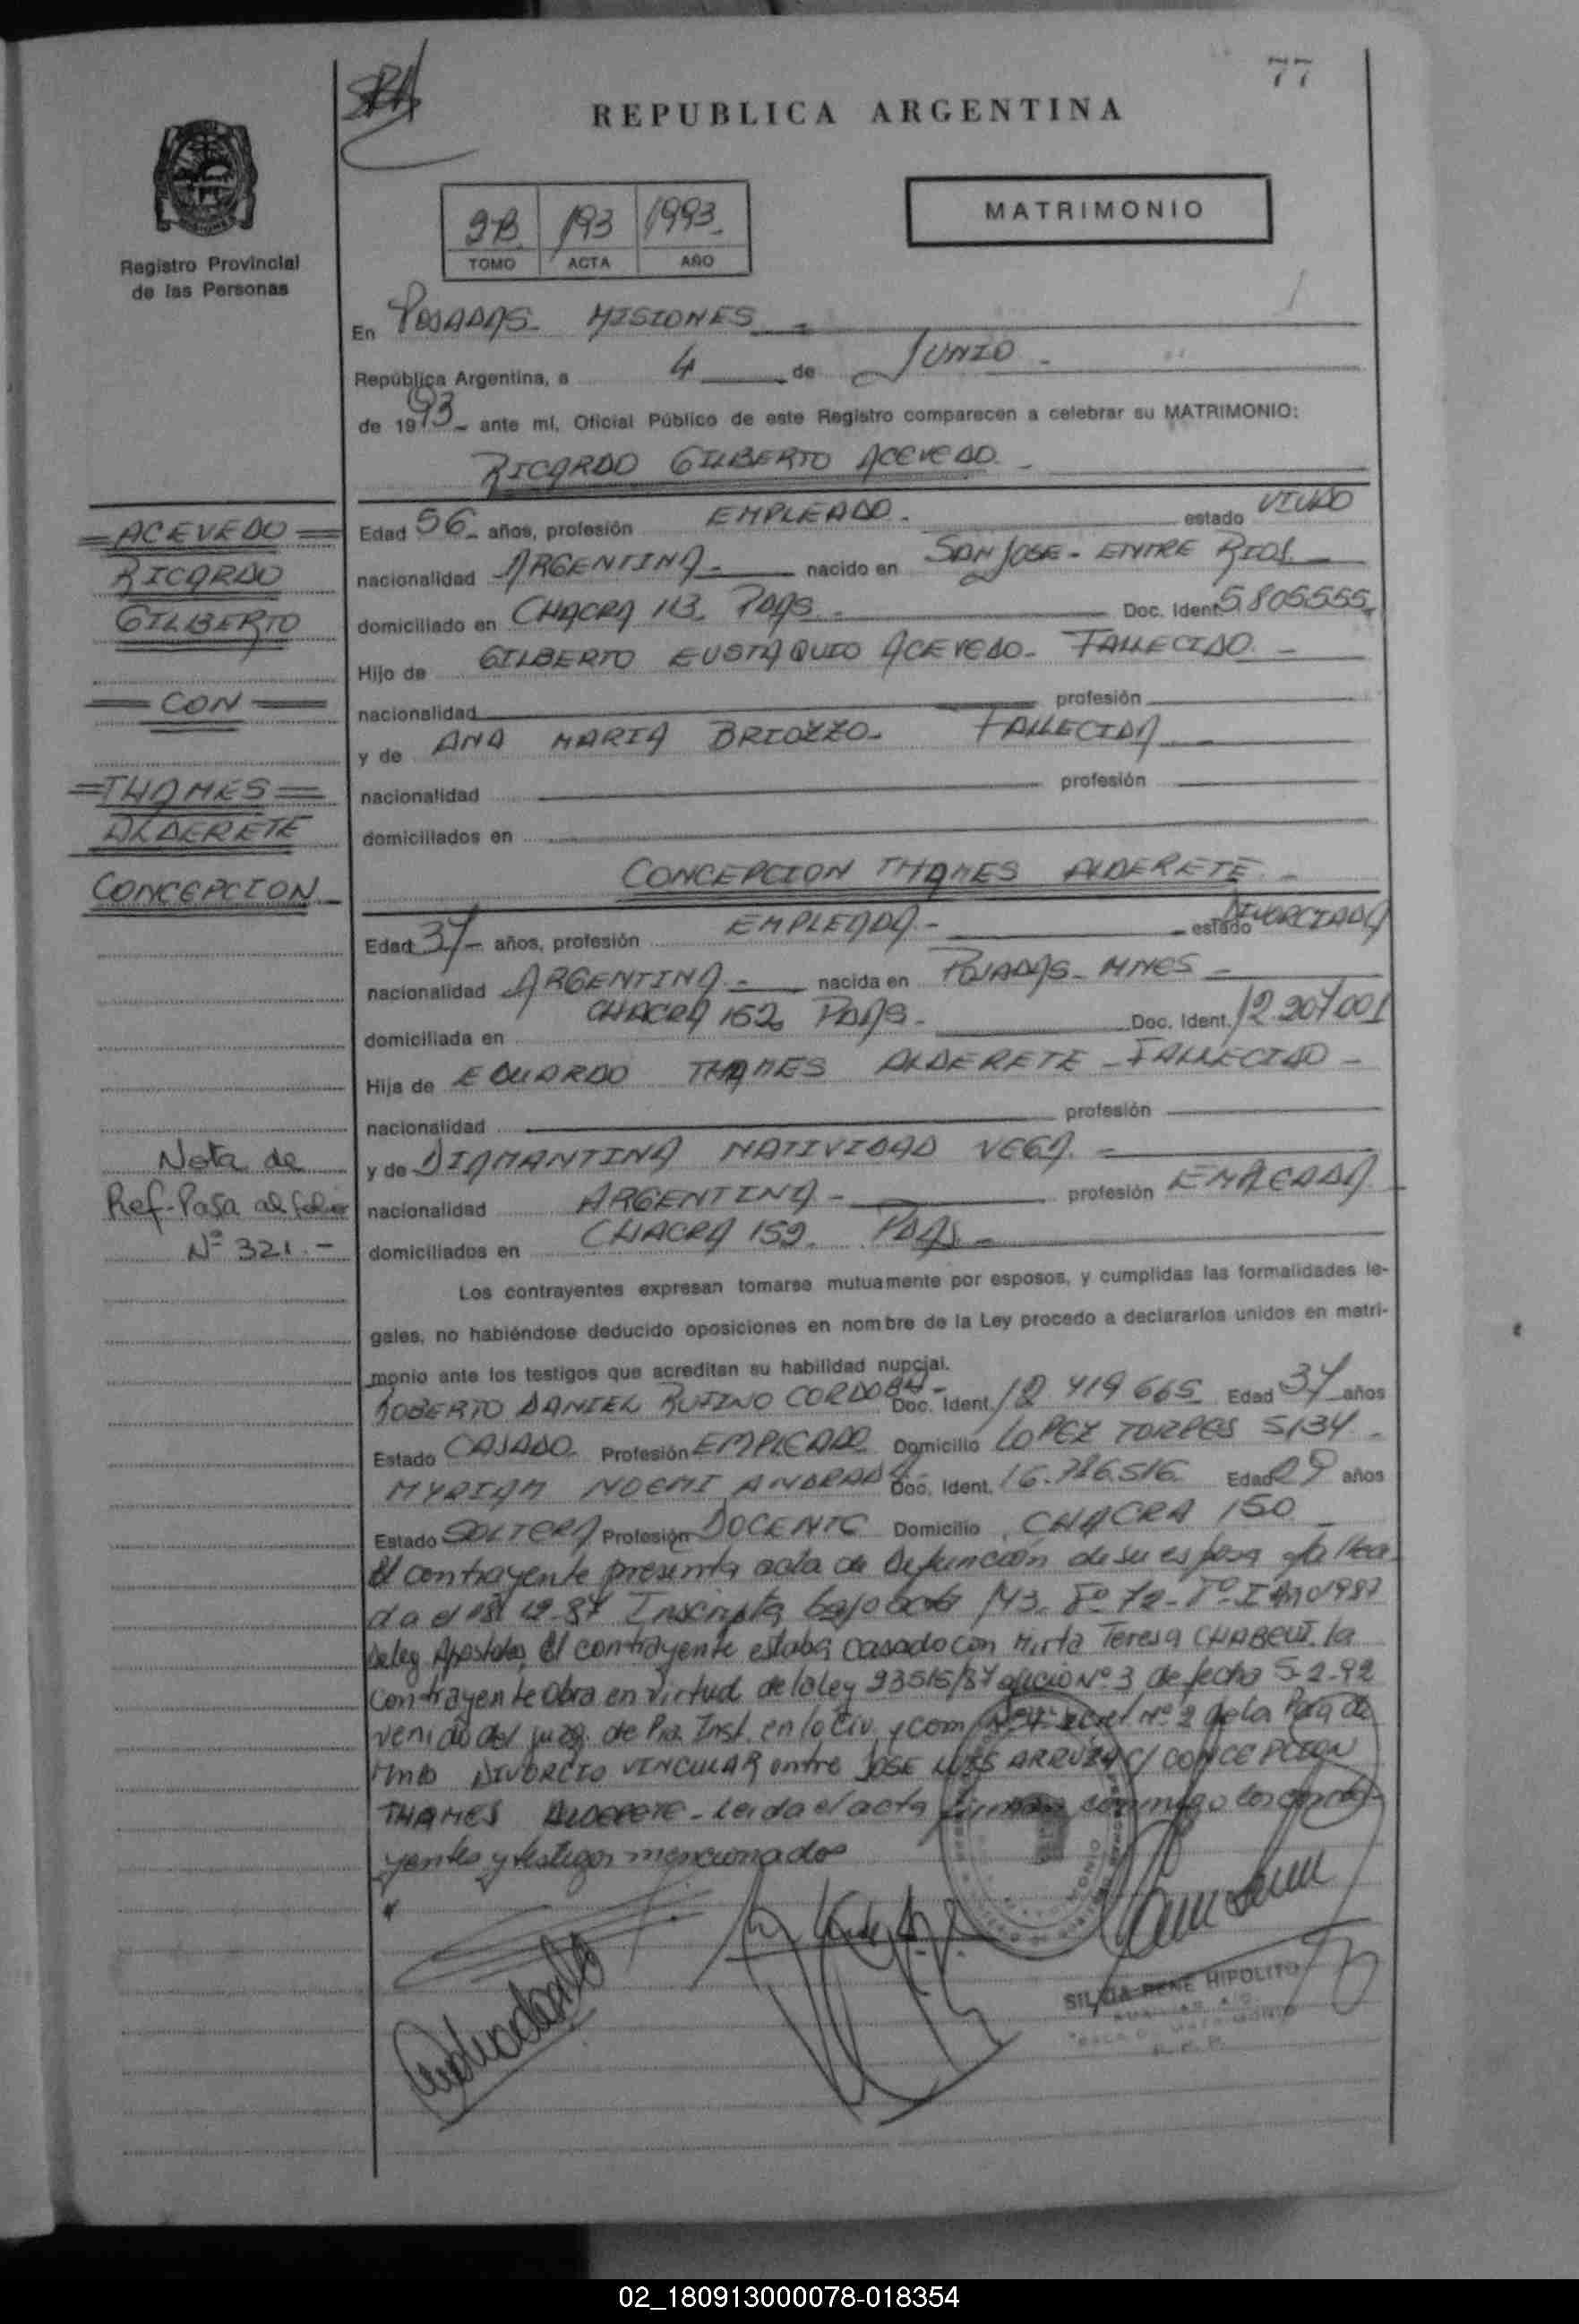 77
REPUBLICA ARGENTINA
MATRIMONIO
2B 193 1993
TOMO ACTA AÑO
Registro Provincial
de las Personas
En POSADAS MISIONES
República Argentina, a 4 de JUNIO
de 1993 ante mí, Oficial Público de este Registro comparecen a celebrar su MATRIMONIO:
RICARDO GILBERTO ACEVEDO
ACEVEDO
RICARDO
GILBERTO
CON
THAMES
ALDERETE
CONCEPCION
Edad 56 años, profesión EMPLEADO estado VIUDO
nacionalidad ARGENTINA nacido en SAN JOSE - ENTRE RIOS
domiciliado en CHACRA 113 PDAS Doc. Ident. 5.805555
Hijo de GILBERTO EUSTAQUIO ACEVEDO - FALLECIDO
nacionalidad profesión
y de ANA MARIA BRIOZZO - FALLECIDA
nacionalidad profesión
domiciliados en
CONCEPCION THAMES ALDERETE
Edad 37 años, profesión EMPLEADA estado DIVORCIADA
nacionalidad ARGENTINA nacida en POSADAS - MNES
domiciliada en CHACRA 152 PDAS Doc. Ident. 12.207001
Hija de EDUARDO THAMES ALDERETE - FALLECIDO
nacionalidad profesión
y de DIAMANTINA NATIVIDAD VEGA
nacionalidad ARGENTINA profesión EMPLEADA
domiciliados en CHACRA 152 PDAS
Nota de
Ref-Pasa al folio
Nº 321.-
Los contrayentes expresan tomarse mutuamente por esposos, y cumplidas las formalidades le-
gales, no habiéndose deducido oposiciones en nombre de la Ley procedo a declararlos unidos en matri-
monio ante los testigos que acreditan su habilidad nupcial.
ROBERTO DANIEL RUFINO CORDOBA Doc. Ident. 12 419 665 Edad 37 años
Estado CASADO Profesión EMPLEADO Domicilio LOPEZ TORRES 5134
MYRIAM NOEMI ANDRADA Doc. Ident. 16.786.516 Edad 29 años
Estado SOLTERA Profesión DOCENTE Domicilio CHACRA 150
El contrayente presenta acta de Defunción de su esposa falleci
da el 18 12-87 Inscripta bajo acta 143 Fº 72 - Tº I Año 1987
Deleg Apostoles El contrayente estaba casado con Mirta Teresa la
contrayente obra en virtud de la ley 23515/87 oficio Nº 3 de fecha 5-2-92
venido del juzg. de Pra. Inst. en lo Civ. y Com Secret Nº 2 de la
DIVORCIO VINCULAR entre JOSE LUIS ARRUZA C/ CONCEPCION
THAMES ALDERETE - Leida el acta firman conmigo los contra-
yentes y testigos mencionados
SILVIA RENE HIPOLITO
02_180913000078-018354